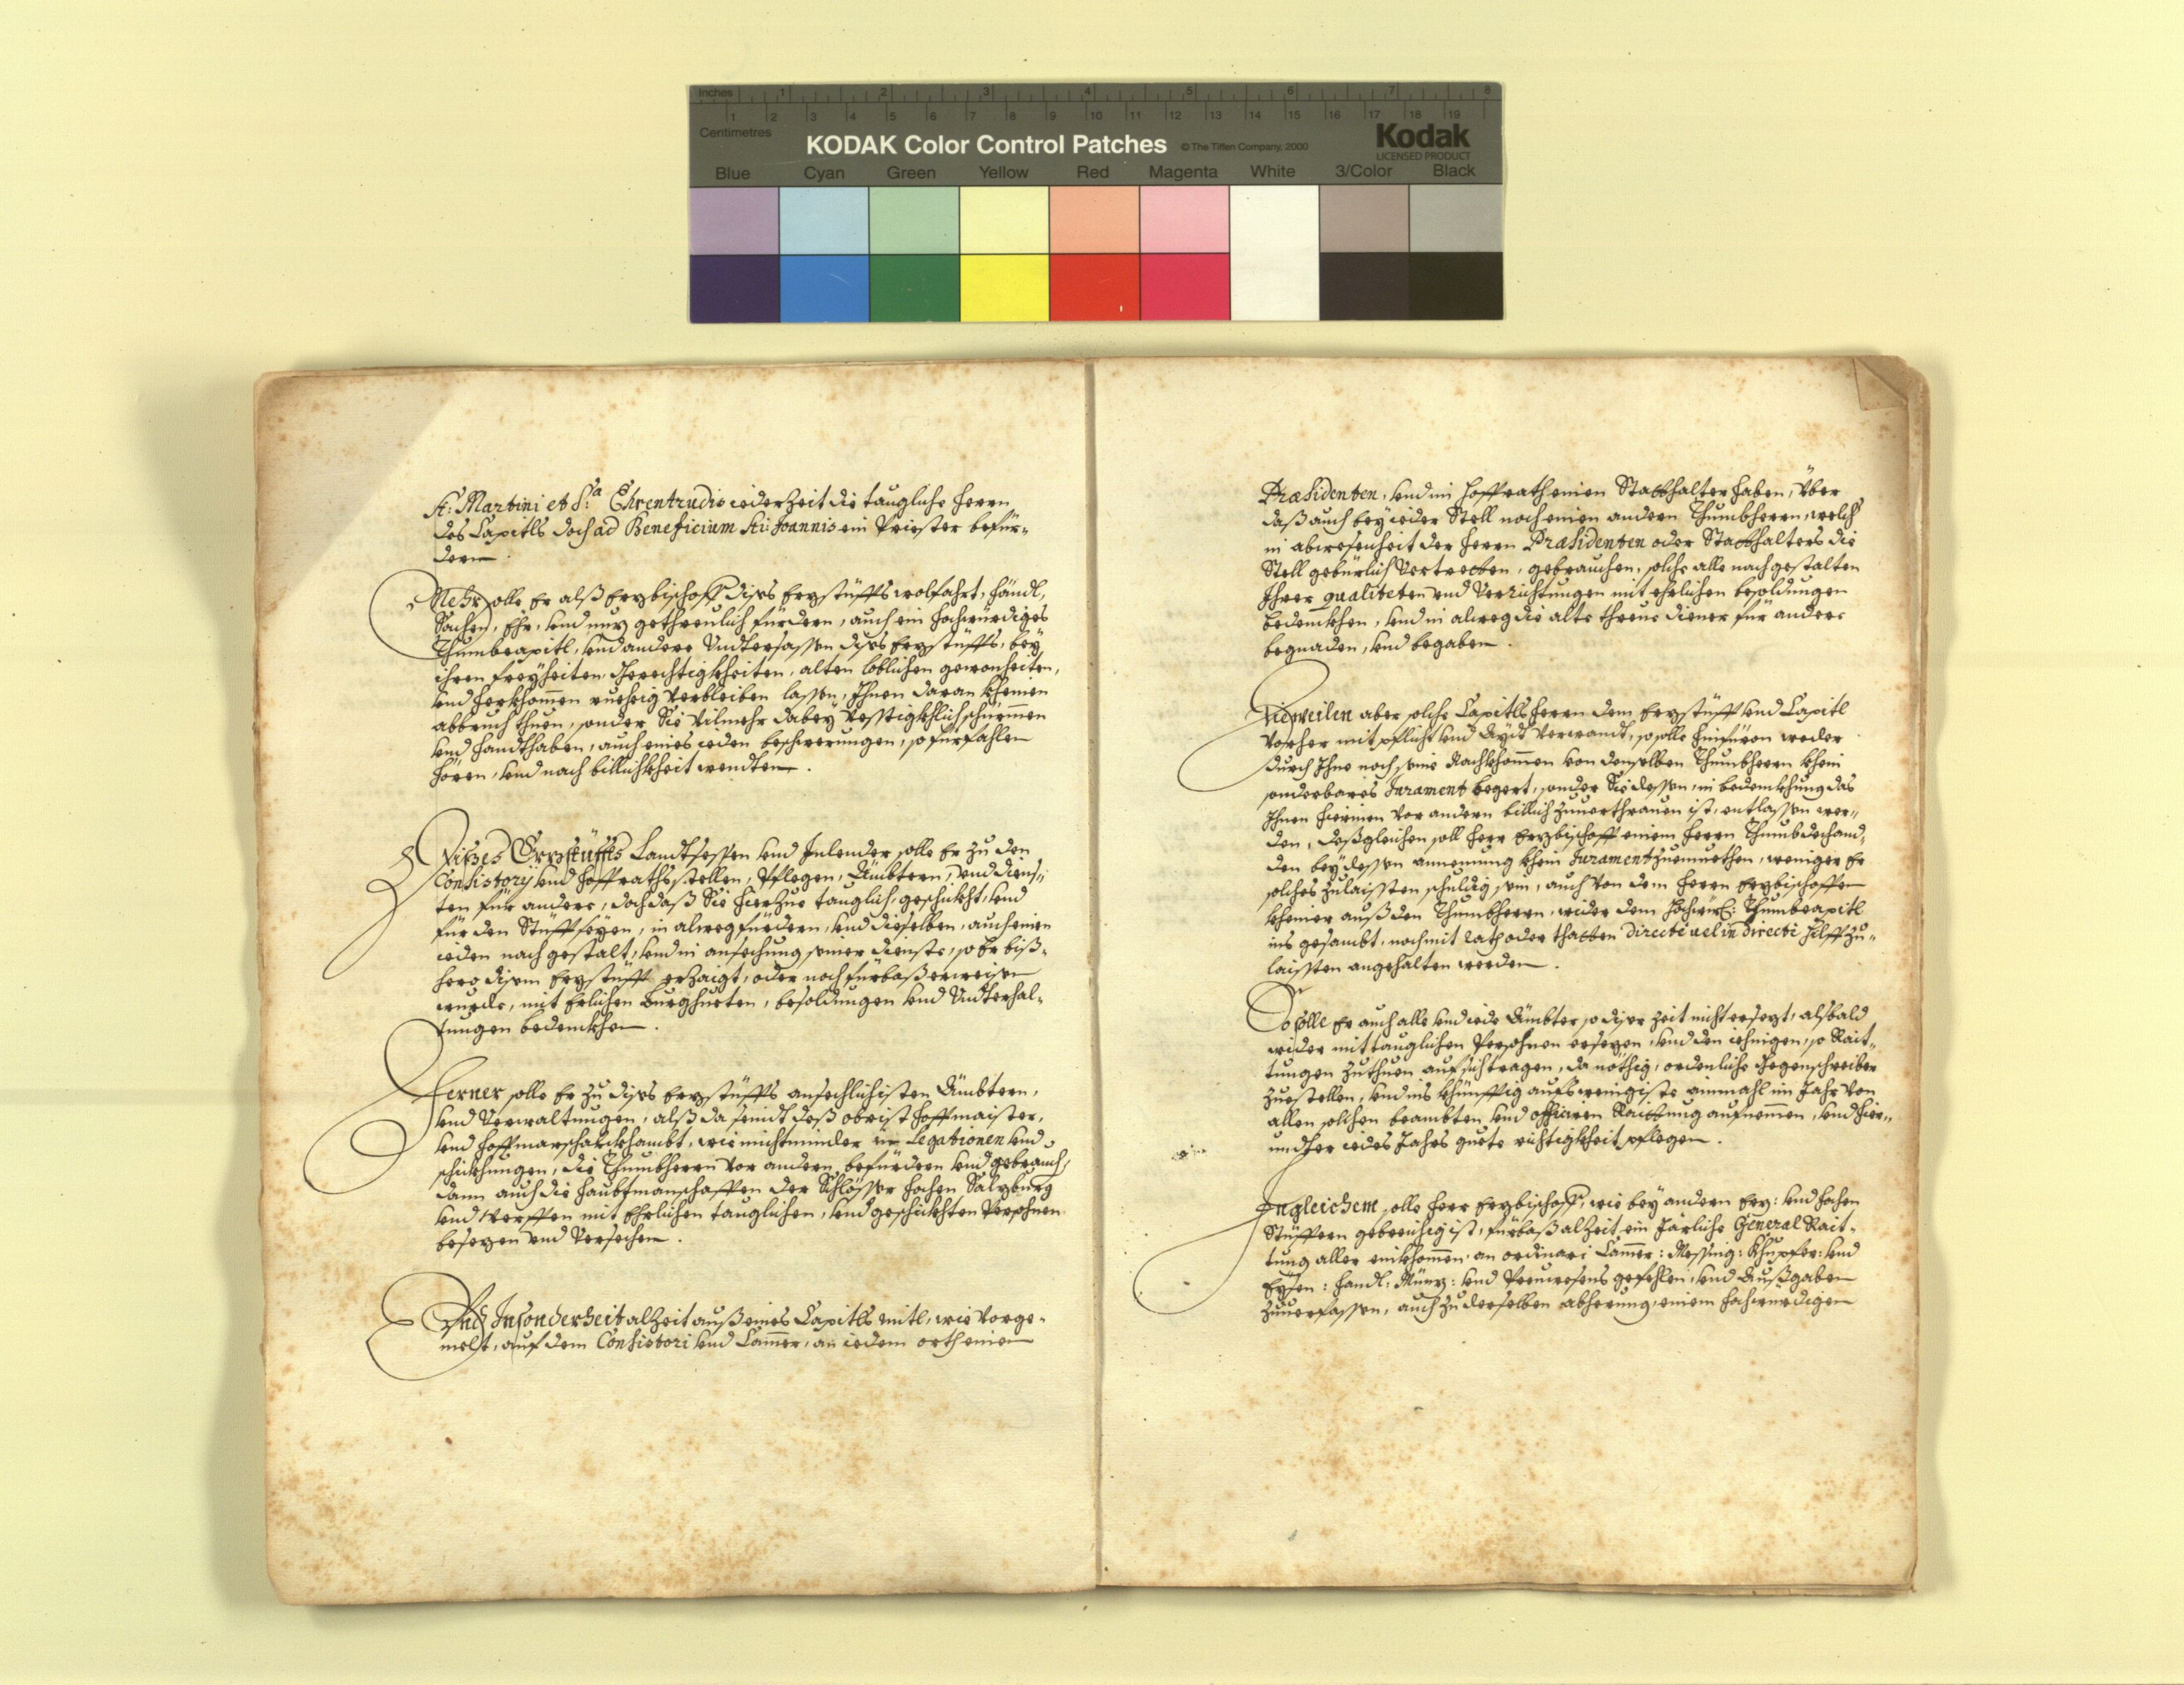 Inches 1 2 3 4 5 6 7 8
1 2 3 4 5 6 7 8 9 10 11 12 13 14 15 16 17 18 19
Centimetres
KODAK Color Control Patches © The Tiffen Company, 2000 Kodak
LICENSED PRODUCT
Blue Cyan Green Yellow Red Magenta White 3/Color Black
St: Martini et S:ta Ehrentrudis iederzeit die taugliche herrn
des Capitls doch ad Beneficium Sti: Joannis ein Priester befür-
dern.
Mehr solle Er alß Erzbischoff dises Erzstüffts wolfahrt, händl,
Sachen, Ehr, vnd nuz gethreulich fürdern, auch ein hochwürdiges
Thumbcapitl, vnd andere Vndtersassen dises Erzstüffts, bey
ihren freyheiten, Gerechtigkheiten, alten loblichen gewonheiten,
vnd herkhommen ruehig verbleiben lassen, Ihnen daran kheinen
abbruch thuen, sonder Sie vilmehr dabey vesstigkhlich schürmen
vnd handthaben, auch eines ieden beschwerungen, so fürfahlen
hören, vnd nach billichkheit wendten.
Dises Erzstüffts Landtsessen vnd Inlender solle Er zu den
Consistory vnd hoffrathsstellen, Pflegen, Ämbtern, vnd diens-
ten für andere, doch daß Sie hierzue tauglich, geschickht, vnd
für den Stüfft seyen, in alweg fürdern, vnd dieselben, auch einen
ieden nach gestalt, vnd in ansechung seiner dienste, so Er biß-
hero disem Erzstüfft erzaigt, oder noch fürbaß erweisen
wurde, mit Erlichen Burghueten, besoldungen vnd Vndterhal-
tungen bedenckhen.
Ferner solle Er zu dises Erzstüffts ansechlichisten Ämbtern,
vnd Verwaltungen, alß da seindt deß obrist hoffmaister,
vnd hoffmarschalckhambt, wie nicht minder in Legationen vnd
schickhungen, die Thumbherrn vor andern befürdern vnd gebrauch,
dann auch die haubtmanschafften der Schlösser hochen Salzburg
vnd Werffen mit Ehrlichen tauglichen, vnd geschickhten Persohnen
besezen vnd Versechen.
Vnd Insonderheit alzeit auß eines Capitls mitl, wie vorge-
melt, auf dem Consistori vnd Cammer, an iedem orth einen
Præsidenten, vnd im hoffrath einen Statthalter haben, Über
daß auch bey ieder Stell noch einen andern Thumbherrn, welch
in abwesenheit der herrn Præsidenten oder Statthalters die
Stell gebürlich Vertretten, gebrauchen, solche alle nach gestalten
Ihrer qualiteten vnd Verrichtungen mit ehrlichen besoldungen
bedenckhen, vnd in alweg die alte threue diener für andere
begnaden, vnd begaben.
Dieweilen aber solche Capitls herrn dem Erzstüfft vnd Capitl
vorher mit pflicht vnd Aydt verwandt, so solle hinfüron weder
durch Ihne noch seine Nachkhommen von denselben Thumbherrn khein
sonderbares Jurament begert, sonder Sie dessen, in bedenckhung das
Ihnen hierinen vor andern billich zuuerthrauen ist, entlassen wer-
den, deßgleichen soll herr Erzbischoff einem herrn Thumbdechand,
den bey dessen annemung khein Jurament zuemuethen, weniger Er
solches zulaissten schuldig sein, auch von dem herrn Erzbischoffen
kheiner auß den Thumbherrn, wider dem Hochwür: Thumbcapitl
ins gesambt, noch mit rath oder thatten directe vel in directe hilff zu-
laissten angehalten werden.
So solle Er auch alle vnd iede Ämbter so diser zeit nicht ersezt, alsbald
wider mit tauglichen Persohnen ersezen, vnd den iehnigen, so Rait-
tungen zuthuen auf sich tragen, da nöthig, ordenliche Gegenschreiber
zuestellen, vnd ins khünfftig aufs wenigiste ainmahl im Jahr von
allen solchen beambten vnd officirn Raittung aufnemen, vnd hier-
undter iedes Jahrs guete richtigkheit pflegen.
Ingleichem solle herr Erzbischoff, wie bey andern Erz: vnd hochen
Stüfften gebreuchig ist, fürbaß alzeit ein Järliche General Rait-
tung aller einkhommen, an ordinari Cammer: Messing: Khupfer: vnd
Eysen: handl: Münz: vnd Preuwesens gefehlen, vnd Außgaben
zuuerfassen, auch zu derselben abherung, einem hochwurdigen